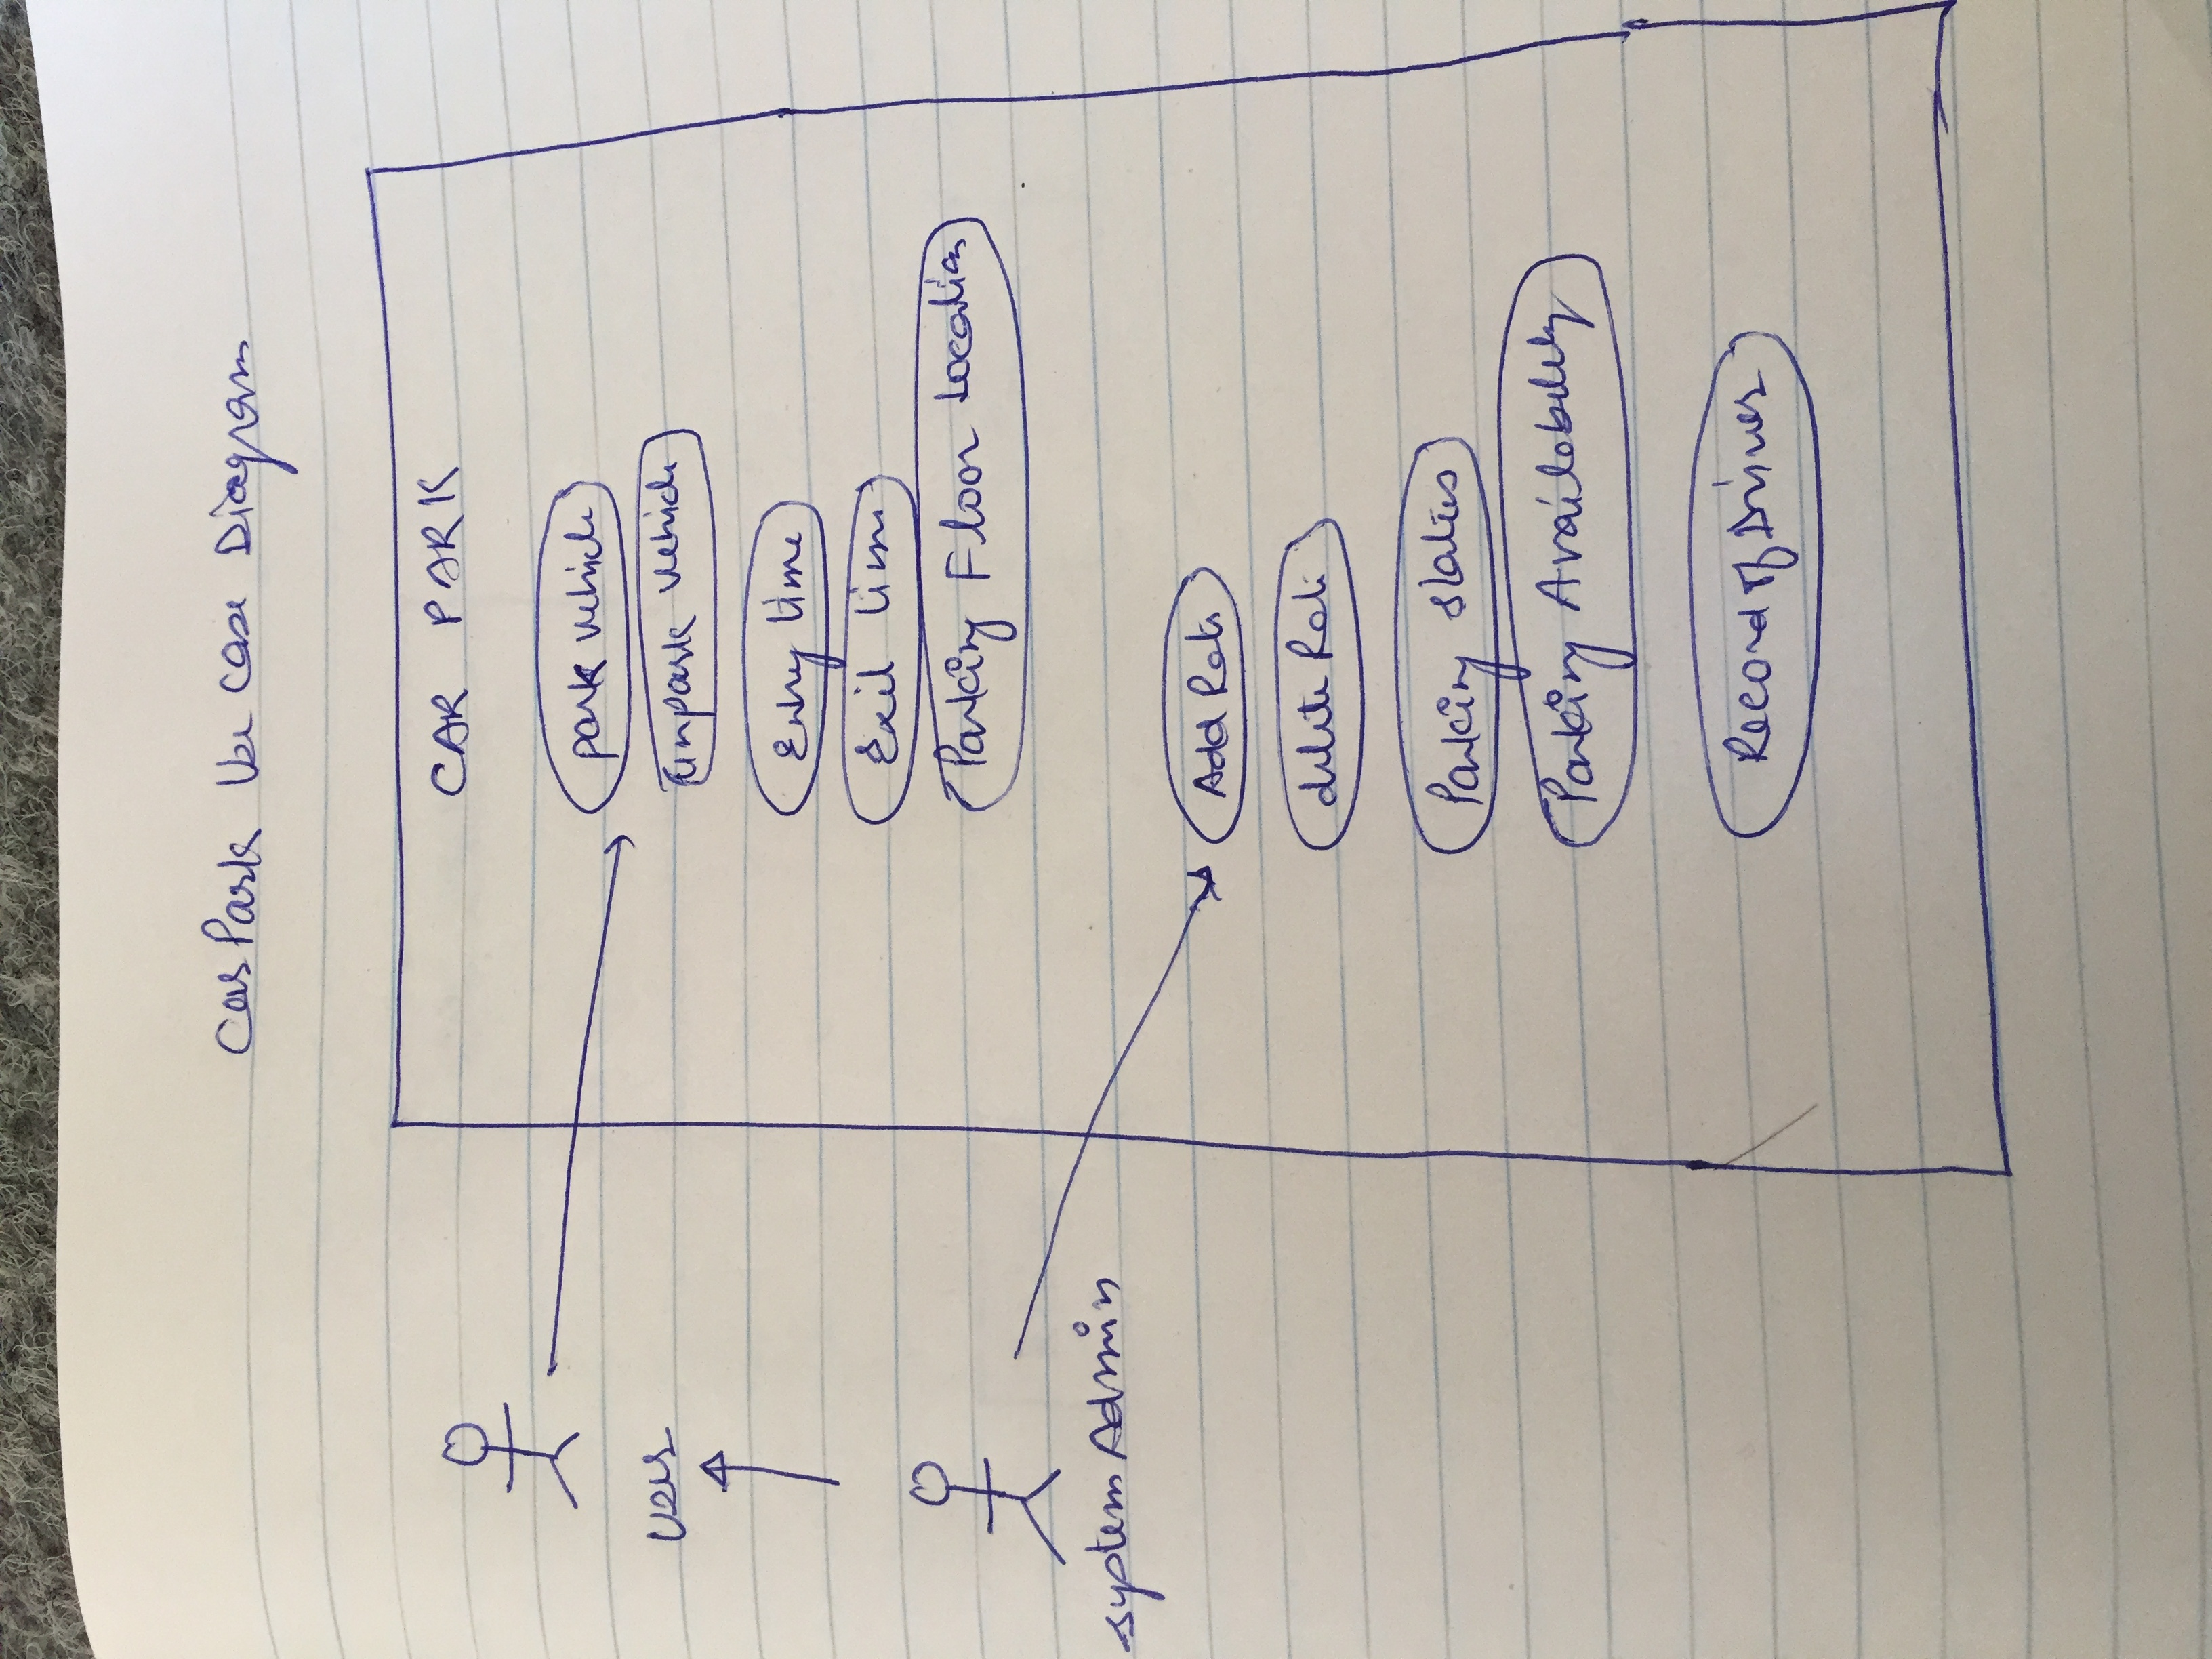 Car Park Use Case Diagram
CAR PARK
park vehicle
User
unpark vehicle
Entry time
Exit time
Parking Floor Location
system Admin
Add Rate
delete Rate
Parking status
Parking Availability
Record of Driver